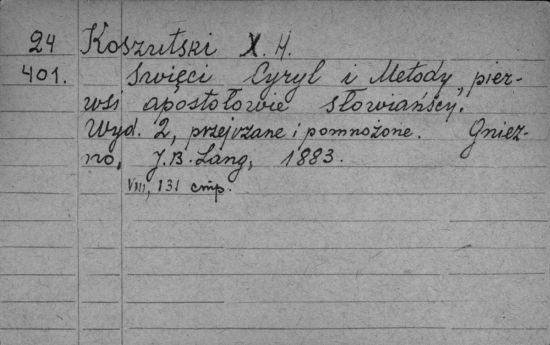 24 Koszutski X. H.
401. Święci Cyryl i Metody, pier-
wsi apostołowie słowiańscy.
Wyd. 2, przejrzane i pomnożone. Gniez-
no, J. B. Lang, 1883.
VIII, 131 стр.